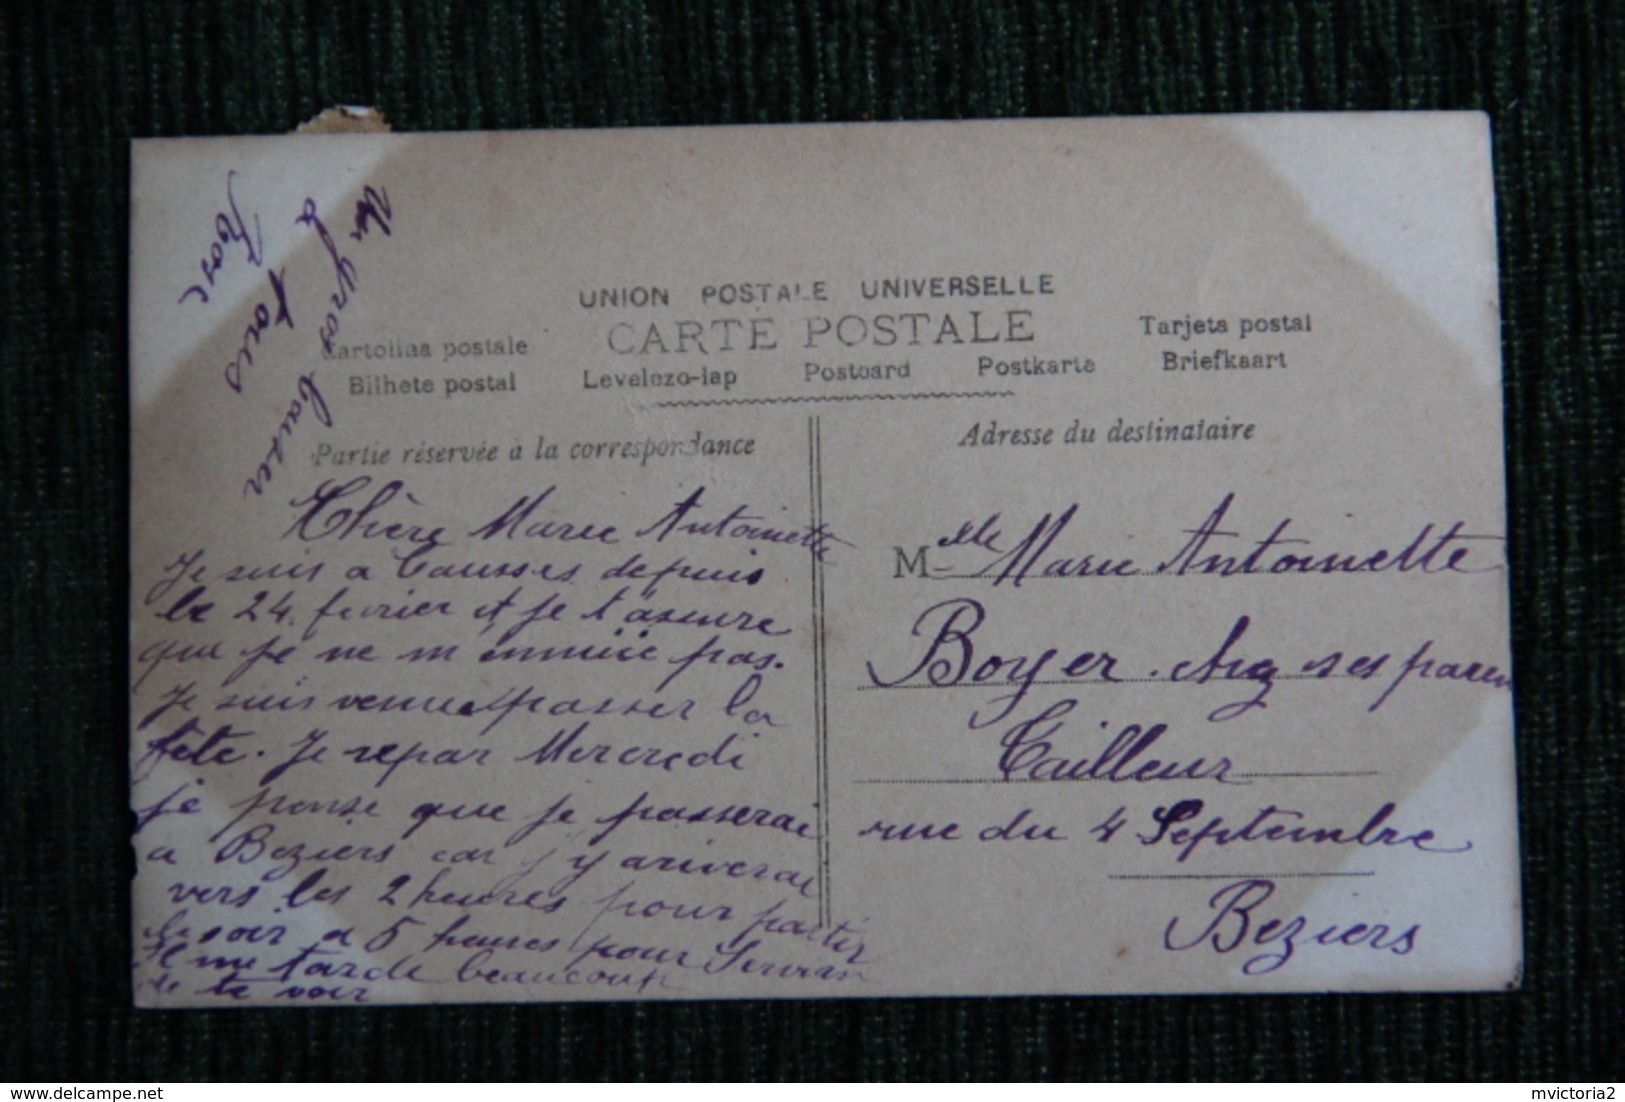 Un gros baiser
à tous
Rose
UNION POSTALE UNIVERSELLE
CARTE POSTALE
Cartolina postale
Tarjeta postal
Bilhete postal
Levelezo-lap
Postcard
Postkarte
Briefkaart
Partie réservée à la correspondance
Adresse du destinataire
Chère Marie Antoinette
Je suis a Causses depuis
le 24 fevrier et je t'assure
que je ne m ennuie pas.
Je suis venue passer la
fête. Je repar Mercredi
je pense que je passerai
a Beziers car j'y ariverai
vers les 2 heures pour partir
le soir a 5 heures pour Servian
Il me tarde beaucoup
de te voir
Mlle Marie Antoinette
Boyer. chez ses paren
Tailleur
rue du 4 Septembre
Beziers
delcampe.net
mvictoria2